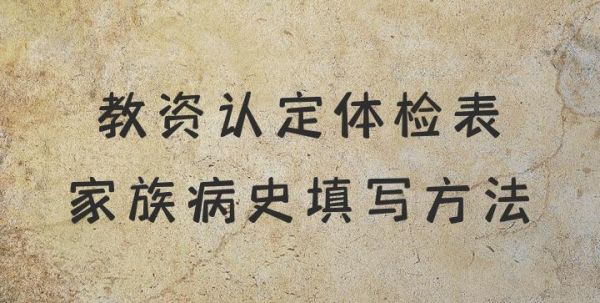 教资认定体检表
家族病史填写方法